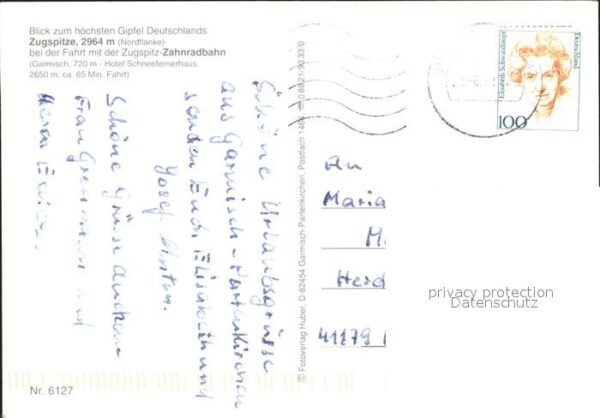 Blick zum höchsten Gipfel Deutschlands
Zugspitze, 2964 m (Nordflanke)
bei der Fahrt mit der Zugspitz-Zahnradbahn
(Garmisch, 720 m - Hotel Schneefernerhaus,
2650 m; ca. 65 Min. Fahrt)
Schöne Urlaubsgrüsse
aus Garmisch-Partenkirchen
senden Euch Elisabeth und
Josef
Schöne Grüsse auch an
Frau und
Herrn
© Fotoverlag Huber, D-82454 Garmisch-Partenkirchen, Postfach 1464
Elisabeth Schwarzhaupt
Deutschland
100
An
Maria
M
Herd
41179
privacy protection
Datenschutz
Nr. 6127